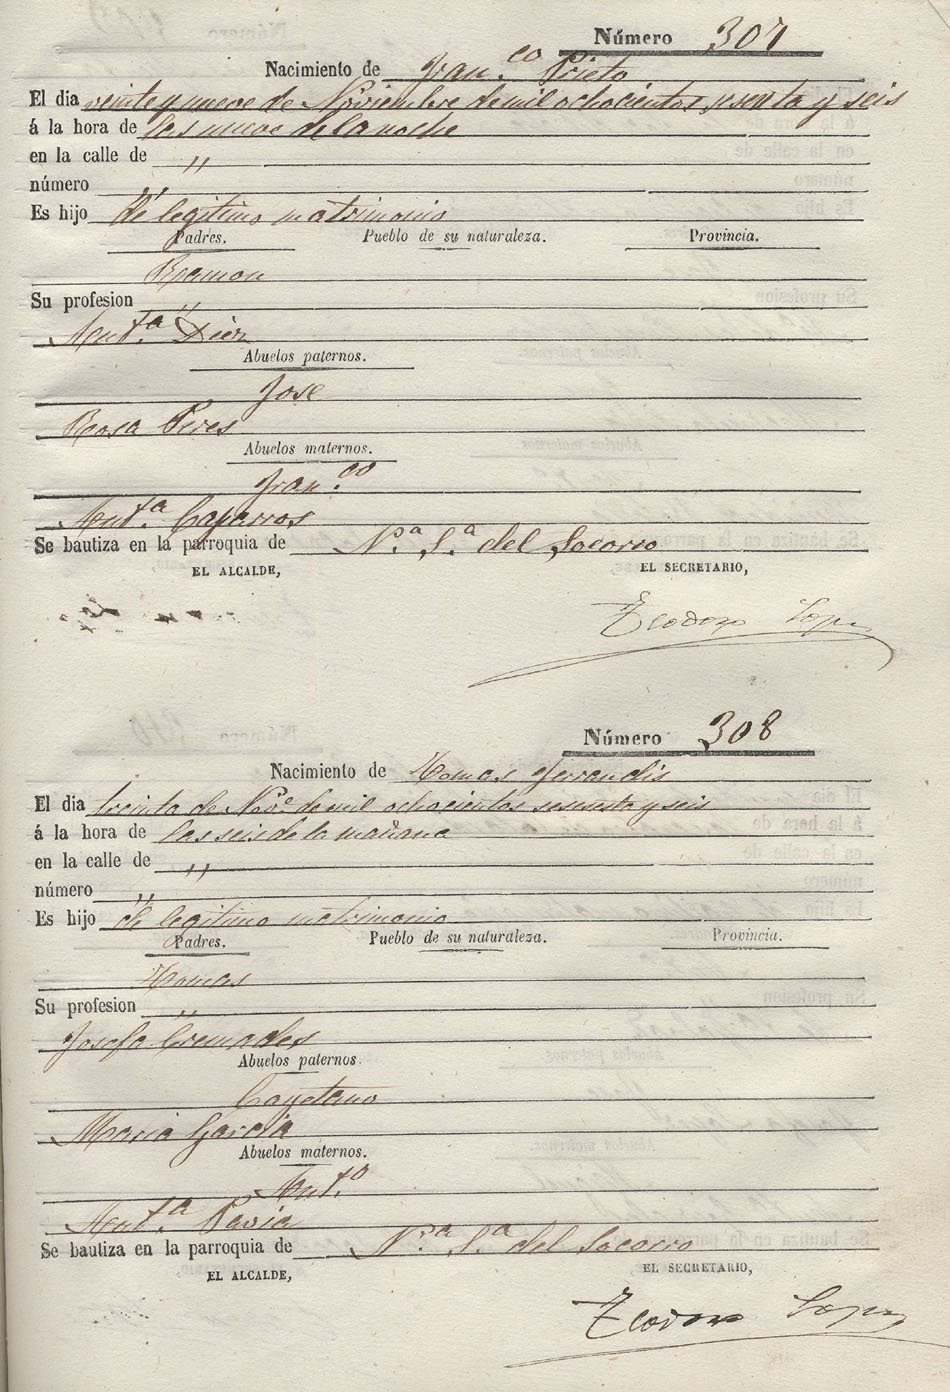 Número 307
Nacimiento de Fran.co Prieto
El dia veinte y nueve de Noviembre de mil ochocientos sesenta y seis
á la hora de las nueve de la noche
en la calle de "
número "
Es hijo de legitimo matrimonio
Padres. Pueblo de su naturaleza. Provincia.
Ramon
Su profesion "
Ant.a Diez
Abuelos paternos.
Jose
Rosa Peres
Abuelos maternos.
Fran.co
Ant.a Caparros
Se bautiza en la parroquia de N.a S.a del Socorro
EL ALCALDE, EL SECRETARIO,
Teodoro Lopez
Número 308
Nacimiento de Tomas Ferrandis
El dia treinta de Nov.e de mil ochocientos sesenta y seis
á la hora de las seis de la mañana
en la calle de "
número "
Es hijo de legitimo matrimonio
Padres. Pueblo de su naturaleza. Provincia.
Tomas
Su profesion "
Josefa Cremades
Abuelos paternos.
Cayetano
Maria Garcia
Abuelos maternos.
Ant.o
Ant.a Pavia
Se bautiza en la parroquia de N.a S.a del Socorro
EL ALCALDE, EL SECRETARIO,
Teodoro Lopez